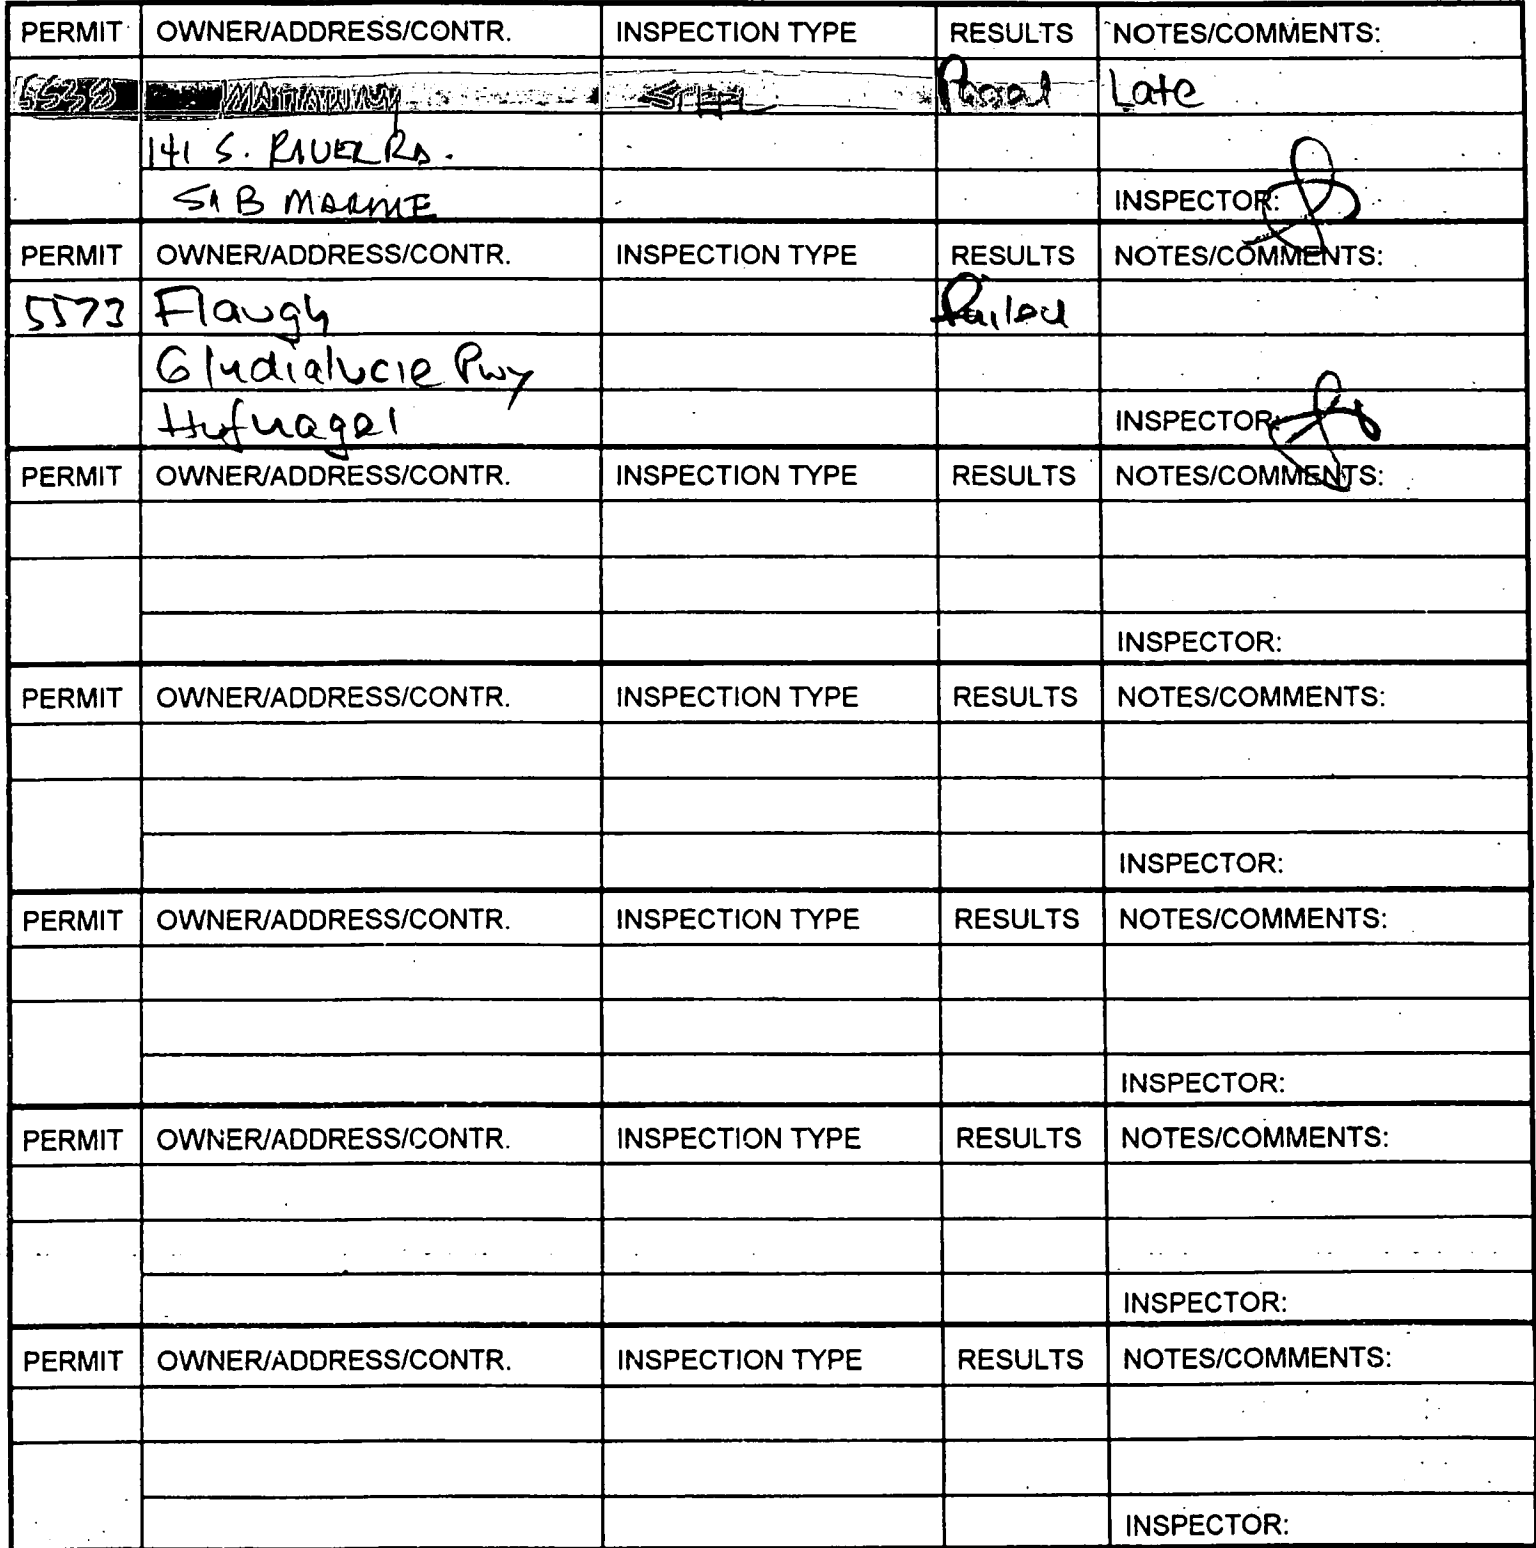 PERMIT OWNER/ADDRESS/CONTR. INSPECTION TYPE RESULTS NOTES/COMMENTS:
5538 STEEL Late
141 S. RIVER RD.
S&B MARINE INSPECTOR:
PERMIT OWNER/ADDRESS/CONTR. INSPECTION TYPE RESULTS NOTES/COMMENTS:
5573 Flaugh Failed
6 Indialucie Pwy
Hufnagel INSPECTOR:
PERMIT OWNER/ADDRESS/CONTR. INSPECTION TYPE RESULTS NOTES/COMMENTS:
INSPECTOR:
PERMIT OWNER/ADDRESS/CONTR. INSPECTION TYPE RESULTS NOTES/COMMENTS:
INSPECTOR:
PERMIT OWNER/ADDRESS/CONTR. INSPECTION TYPE RESULTS NOTES/COMMENTS:
INSPECTOR:
PERMIT OWNER/ADDRESS/CONTR. INSPECTION TYPE RESULTS NOTES/COMMENTS:
INSPECTOR:
PERMIT OWNER/ADDRESS/CONTR. INSPECTION TYPE RESULTS NOTES/COMMENTS:
INSPECTOR: